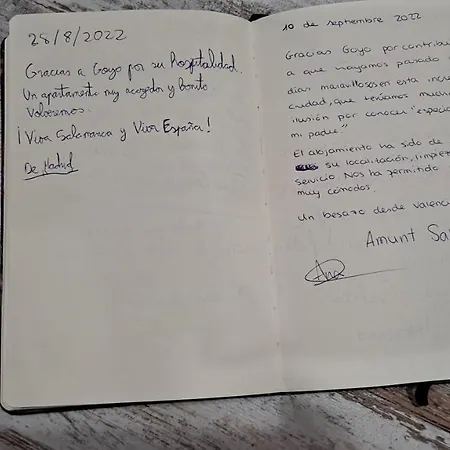 28/8/2022
Gracias a Goyo por su Hospitalidad.
Un apartamento muy acogedor y bonito
Volveremos.
¡Viva Salamanca y Viva España!
De Madrid
10 de septiembre 2022
Gracias Goyo por contribu
a que hayamos pasado
días maravillosos en esta incre
ciudad, que teníamos much
ilusión por conocer "especia
mi padre"
El alojamiento ha sido de
su localitación, limpie
servicio. Nos ha permitido
muy cómodos.
Un besazo desde Valenci
Amunt Sa
Ana